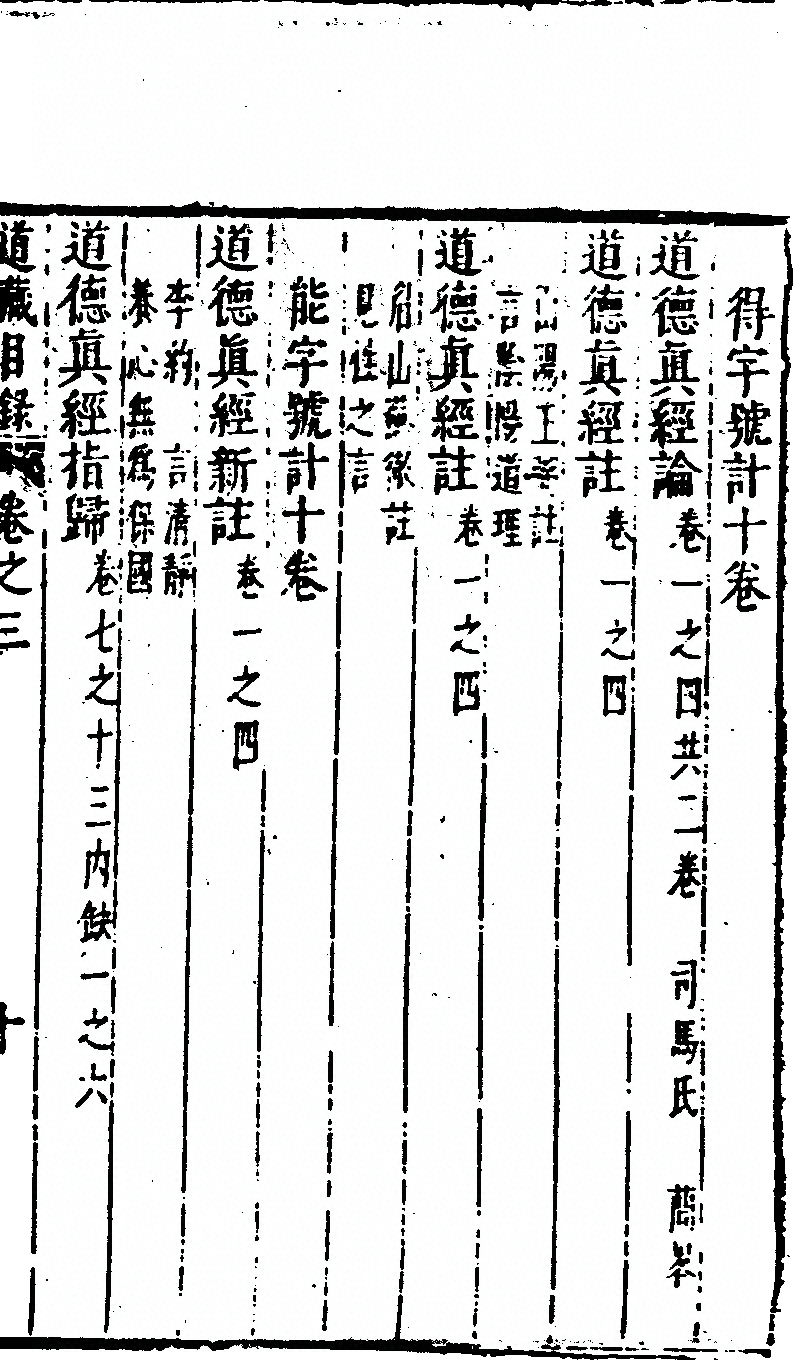 得字號計十卷
道德眞經論 卷一之四共二卷 司馬氏
道德眞經註 卷一之四
山陽王 註
言陰陽道理
道德眞經註 卷一之四
眉山蘇 註
見性之言
能字號計十卷
道德眞經新註 卷一之四
李約 言清靜
養心無爲保國
道德眞經指歸 卷七之十三內缺一之六
道藏目錄 卷之三 十